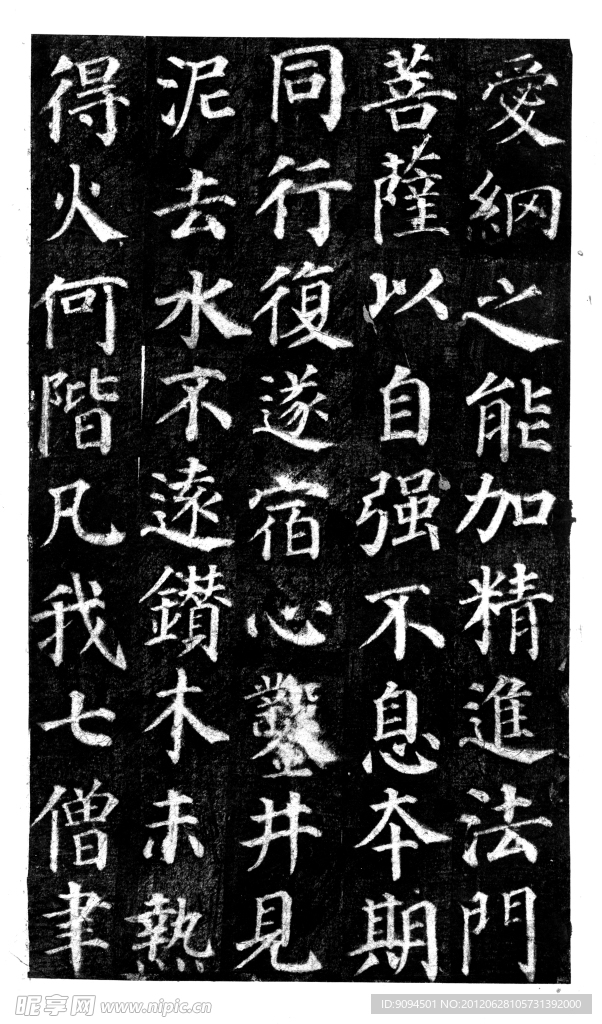 愛網之能加精進法門
菩薩以自强不息本期
同行復遂宿心鑿井見
泥去水不遠鑚木未熱
得火何階凡我七僧聿
昵享网 www.nipic.cn
ID:9094501 NO:20120628105731392000